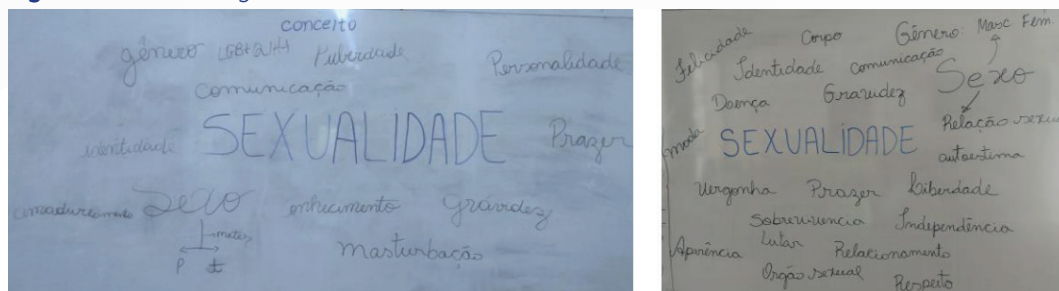 conceito
gênero LGBT Puberdade
Personalidade
Comunicação
identidade SEXUALIDADE Prazer
amadurecimento Sexo conhecimento gravidez
P
masturbação
Felicidade Corpo Gênero: Masc Fem.
Identidade comunicação
Sexo
Doença Gravidez
Relação sexual
moda SEXUALIDADE
autoestima
Vergonha Prazer Liberdade
Sobrevivencia Independência
Aparência Lutar Relacionamento
Orgão sexual Respeito